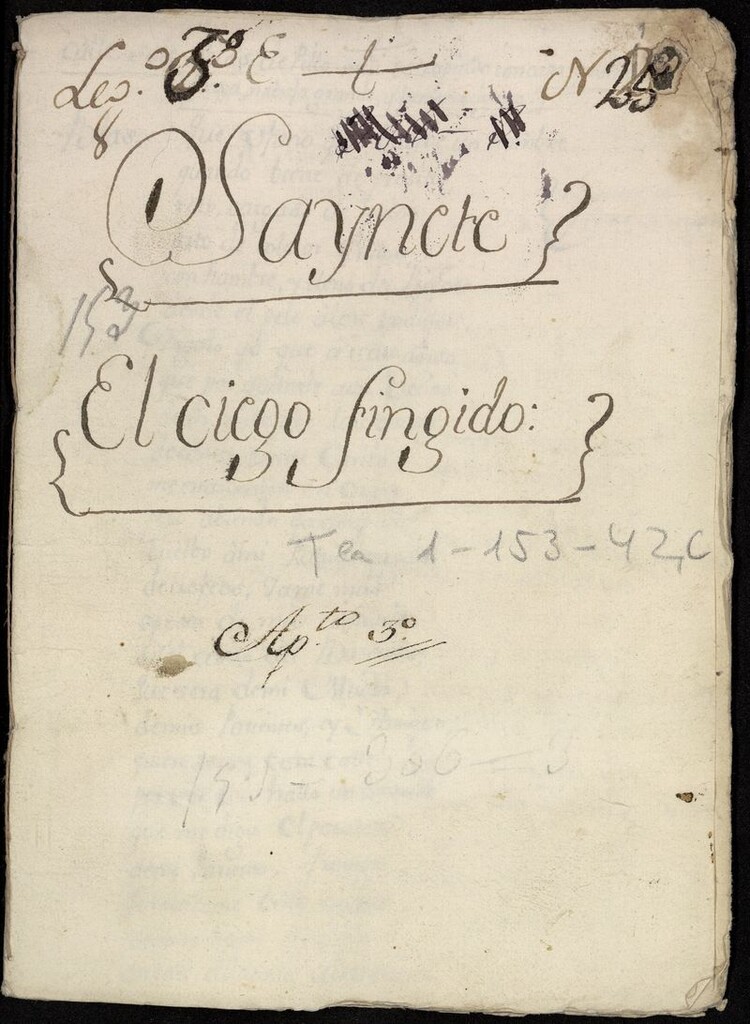 Leg.º 3º E t N 25
8
Saynete
153
El ciego fingido:
Tea 1-153-42, C
Ap.to 3º